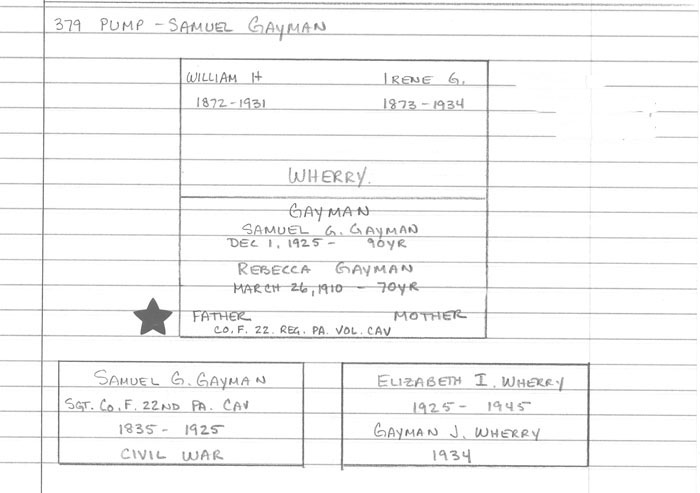 379 PUMP - SAMUEL GAYMAN
WILLIAM H IRENE G.
1872-1931 1873-1934
WHERRY.
GAYMAN
SAMUEL G. GAYMAN
DEC 1, 1925 - 90YR
REBECCA GAYMAN
MARCH 26, 1910 - 70YR
FATHER MOTHER
CO. F. 22. REG. PA. VOL. CAV
SAMUEL G. GAYMAN
SGT. CO. F. 22ND PA. CAV
1835 - 1925
CIVIL WAR
ELIZABETH I. WHERRY
1925 - 1945
GAYMAN J. WHERRY
1934